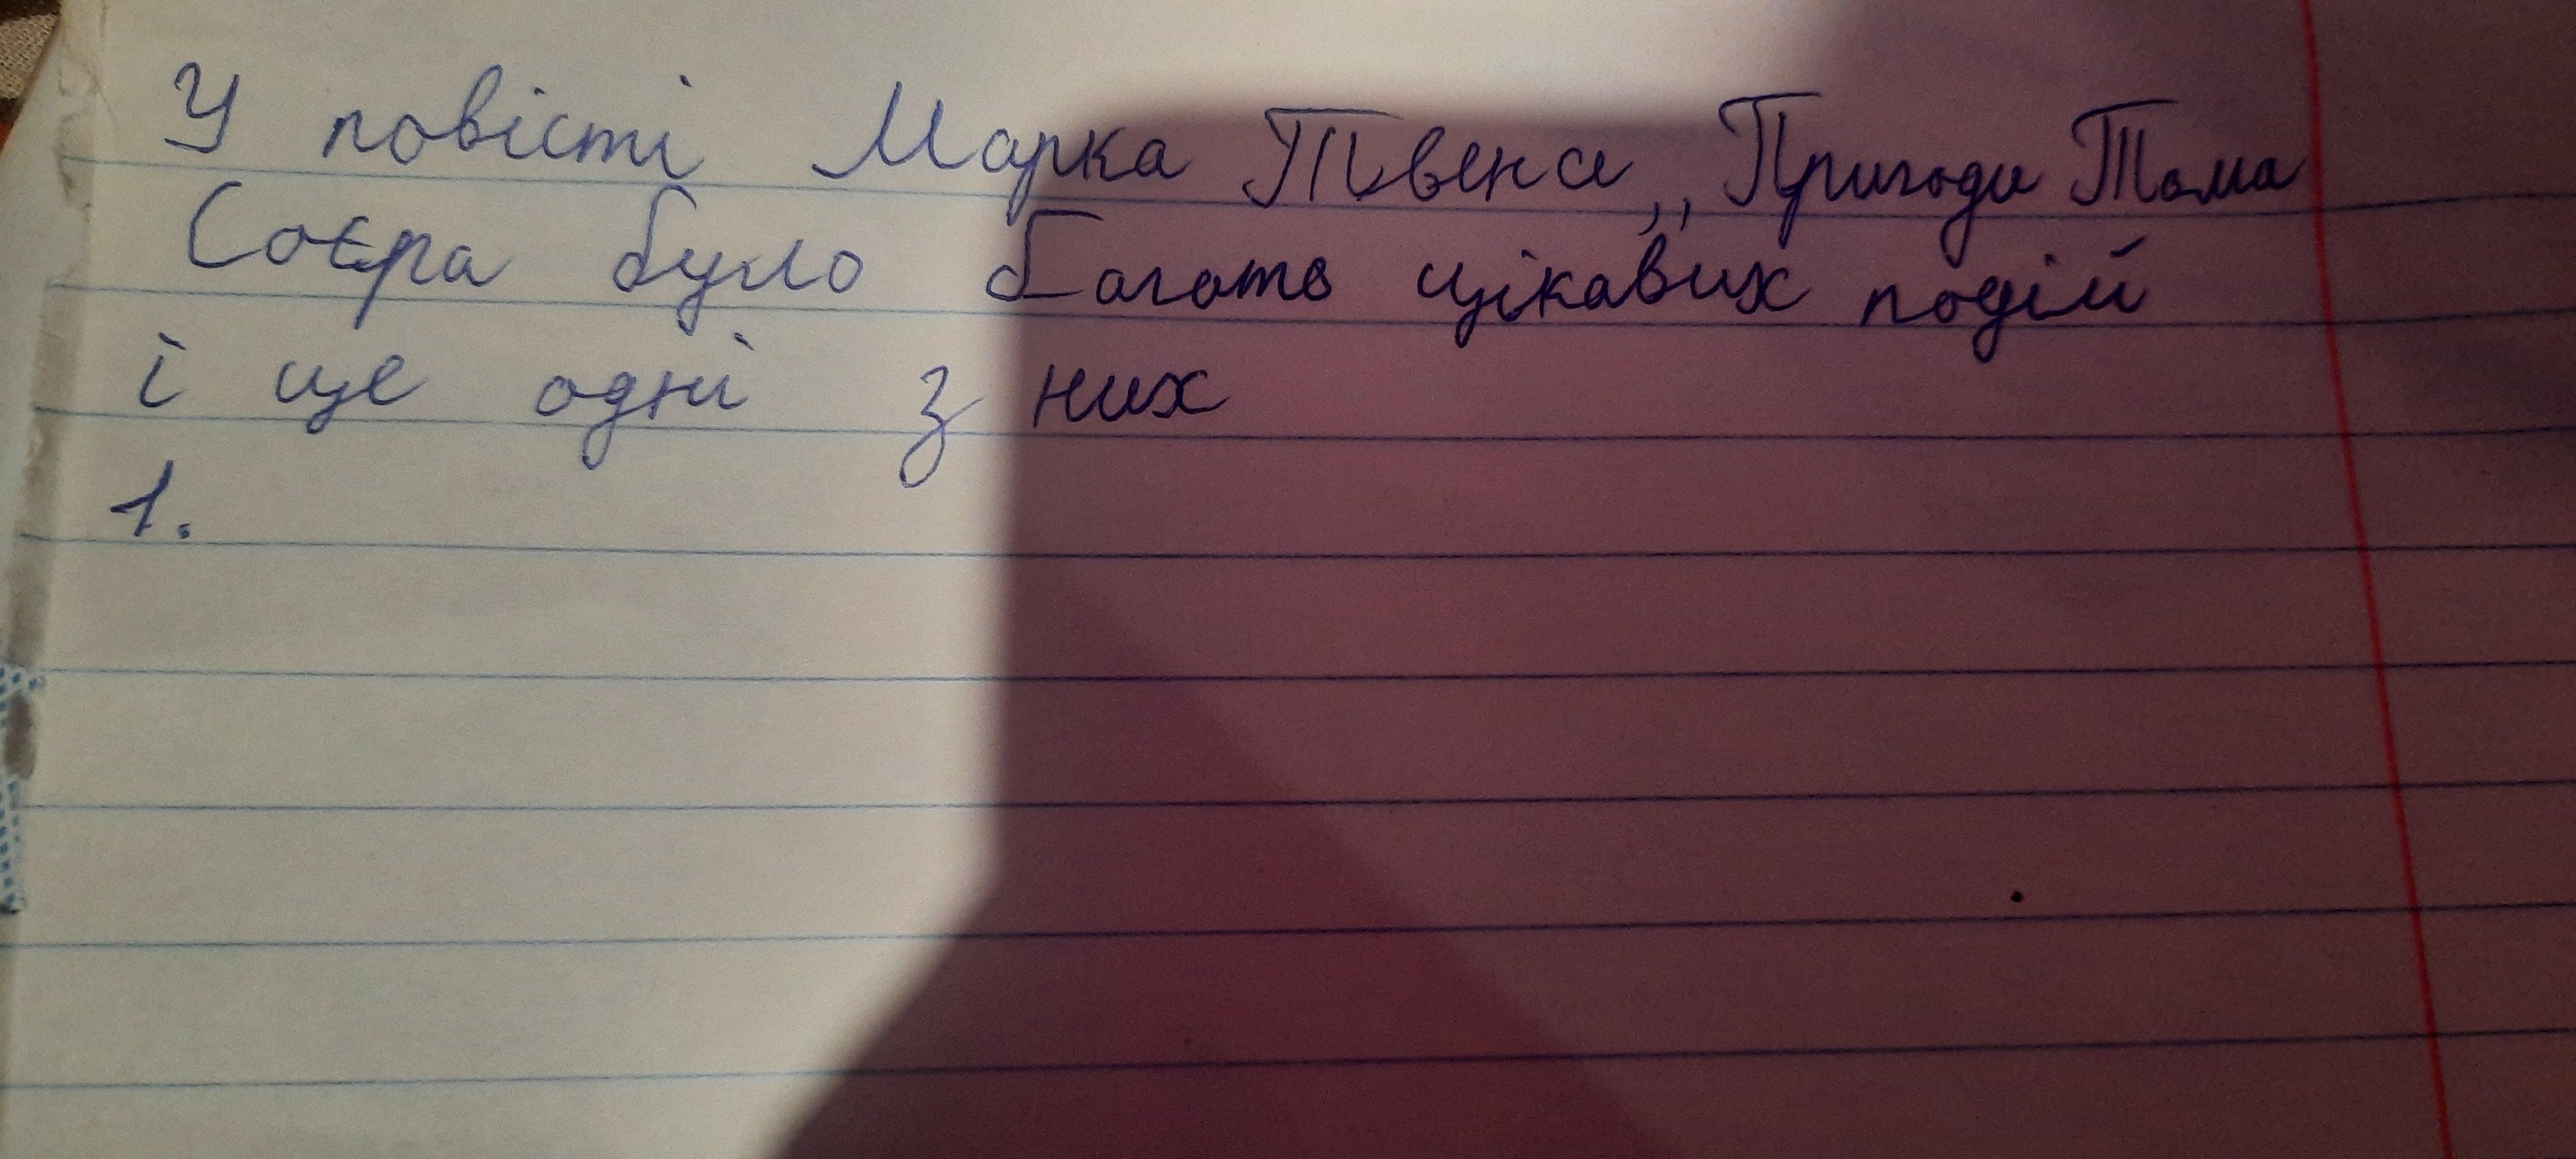 У повісті Марка Твена ,,Пригоди Тома
Соєра було багато цікавих подій
і ще одні з них
1.